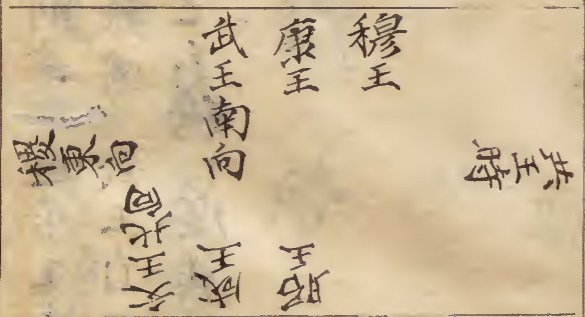 共王時
穆王
康王
昭王
武王南向
成王
文王北向
稷東向